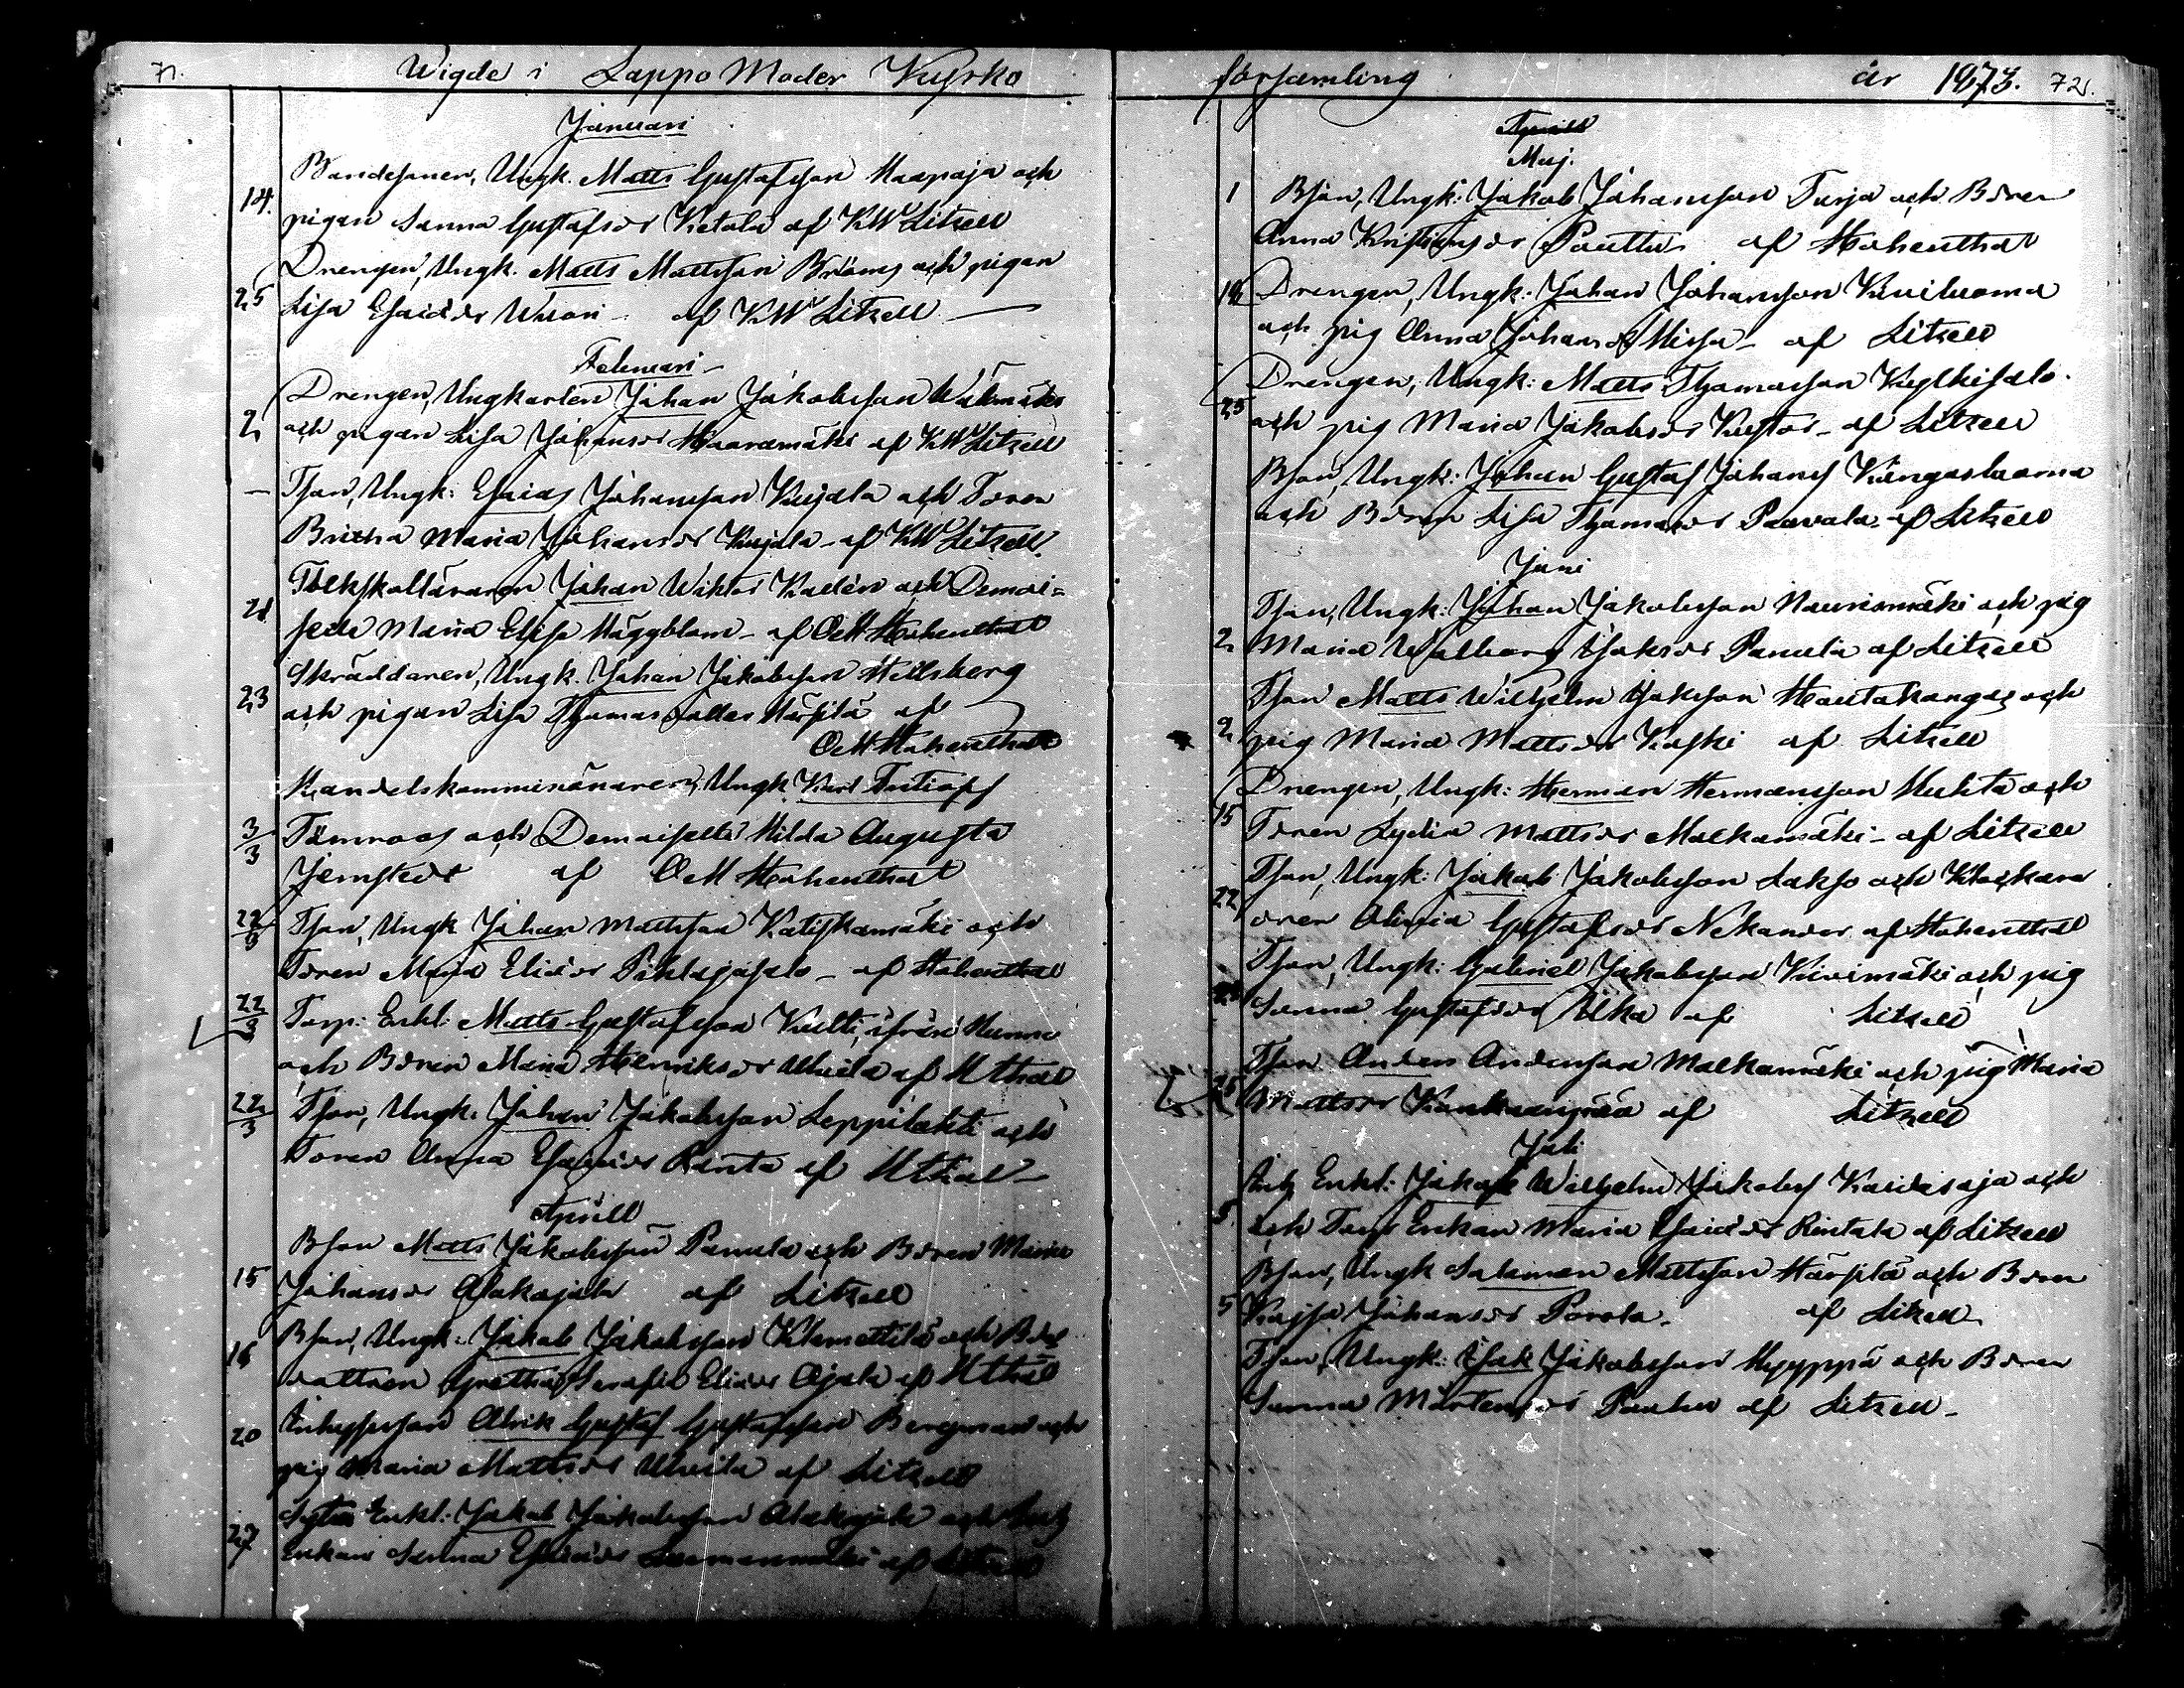 71.
Wigde i Lappo Moder Kyrko
Januari
Bondesonen, Ungk. Matts Gustafsson Haapoja och
14. pigan Sanna Gustafsdr Ketola af KW Litzell
Drengen, Ungk. Matts Mattsson Bräms och pigan
25 Lisa Esaidr Wuori - af KW Litzell
Februari
Drengen, Ungkarlen Johan Jakobsson
2 och pigan Lisa Johansdr Haaramäki af KW Litzell
— Tson, Ungk: Esaias Johansson Kujala och Tdren
Britha Maria Johansdr Kujala - af KW Litzell.
Folkskolläraren Johan Wiktor Kalén och Demoi=
21 selle Maria Elisa Häggblom - af OM Hohenthal
Skräddaren, Ungk. Johan Jakobsson Hellsberg
23 och pigan Lisa Thomasdotter Härsilä af
OM Hohenthal
Handelskommisionären, Ungk. Karl Fritiof
3/3 Törnroos och Demoiselle Hilda Augusta
Jernstedt af OM Hohenthal
22/3 Tson, Ungk Johan Mattsson Katiskamäki och
Tdren Maja Eliædr Pihlajasalo - af Hohenthal
22/3 Torp: Enkl: Matts Gustafsson Kultti, ifrån
och Bdren Maria Henriksdr Uhvila af Hthal
22/3 Tson, Ungk: Johan Jakobsson Leppilahti och
Tdren Anna Esaiædr Ranta af Hthal -
Aprill
Bson Matts Jakobsson Panula och Bdren Maria
15 Johansdr Alakojola af Litzell
Bson, Ungk: Jakob Jakobsson Klemettilä och Bdr
16 dottren Gretha Serafia Eliædr Ojala af Hthal
Gustaf Gustafsson Bergman och
20 pig Maria Mattsdr Uhvila af Litzell
Enkl: Jakob Jakobsson Alakojola och
27 Enkan Sanna Esaiædr af Litzell
församling år 1873. 72.
Aprill
Maj.
1 Bson, Ungk: Jakob Johansson Turja och Bdren
Anna Kristiansdr Pouttu af Hohenthal
18 Drengen, Ungk: Johan Johansson Kiviluoma
och pig Anna Johansdr Hissa - af Litzell
Drengen, Ungk: Matts Thomasson Kylkisalo
25 och pig Maria Jakobsdr Kustor - af Litzell
Bson, Ungk: Johan Gustaf Johans Kangasluoma
och Bdren Lisa Thomasdr Paavola af Litzell
Juni
Tson, Ungk: Johan Jakobsson Naurismäki och pig
2 Maria Walborg Isaksdr Panula af Litzell
Tson Matts Wilhelm Isaksson Hautakangas och
2 pig Maria Mattsdr Koski af Litzell
Drengen, Ungk: Herman Hermansson Huhta och
15 Tdren Lydia Mattsdr Malkamäki - af Litzell
Tson, Ungk: Jakob Jakobsson Lakso och Klockare
22 dren Gustafsdr Nekander af Hohenthal
Tson, Ungk: Gabriel Jakobsson Kivimäki och pig
Sanna Gustafsdr Ulka af Litzell
Tson Anders Andersson Malkamäki och pig Maria
25 Mattsdr Kankaanpää af Litzell
Juli
Enkl: Jakob Wilhelm Jakobs Kaidesoja och
5 och Torp Enkan Maria Esaidr Rintala af Litzell
Bson, Ungk Salomon Mattsson Härsilä och Bdren
5 Kajsa Johansdr Porola - af Litzell
Tson, Ungk: Isak Jakobsson Hyyppä och Bdren
Sanna Mårtensdr Pouttu af Litzell -